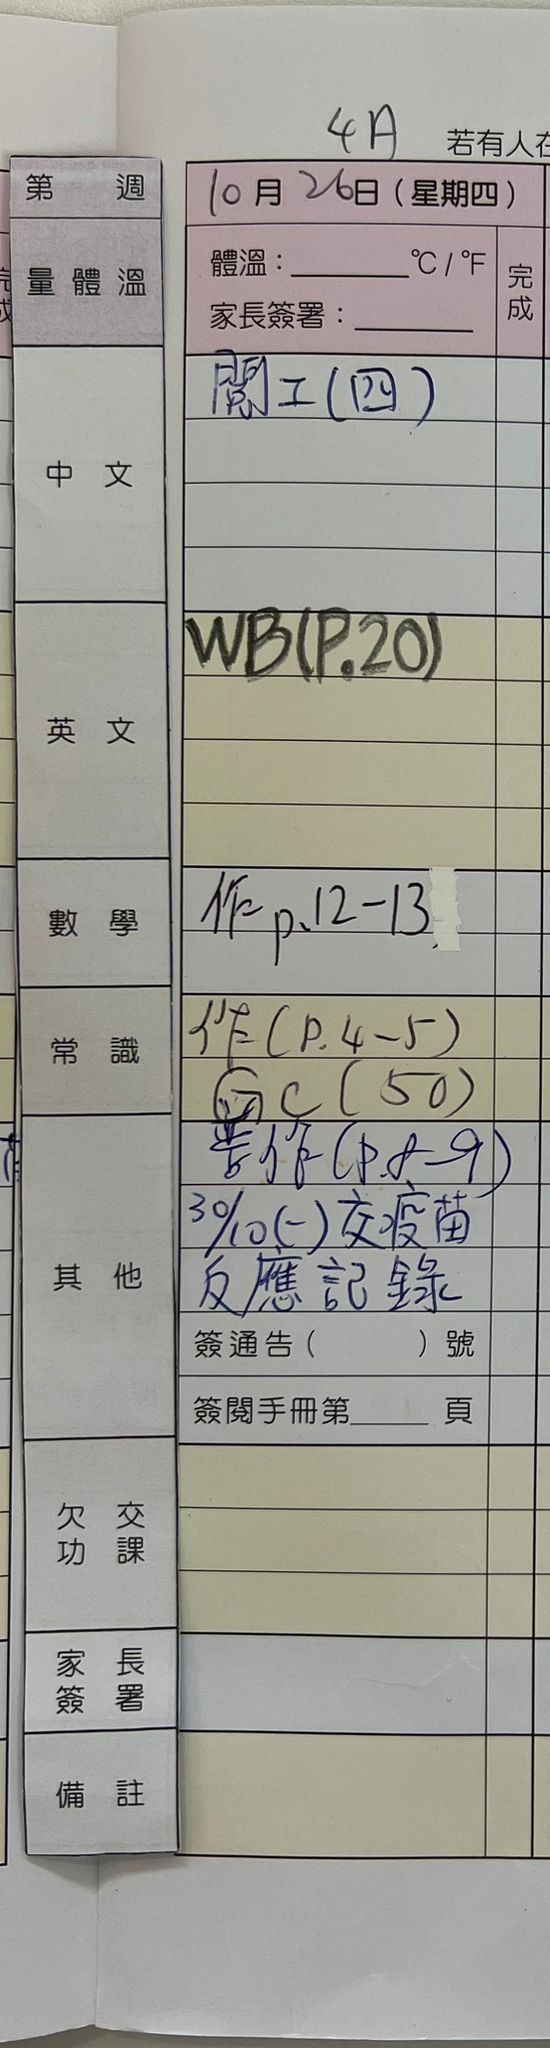 4A
若有人在
第 週
10月26日（星期四）
量體溫
體溫：______℃/℉
完成
家長簽署：______
中文
閱工(四)
英文
WB(P.20)
數學
作p.12-13
常識
作(P.4-5)
GC(50)
其他
普作(P.8-9)
30/10(一)交疫苗
反應記錄
簽通告（ ）號
簽閱手冊第____頁
欠交
功課
家長
簽署
備註